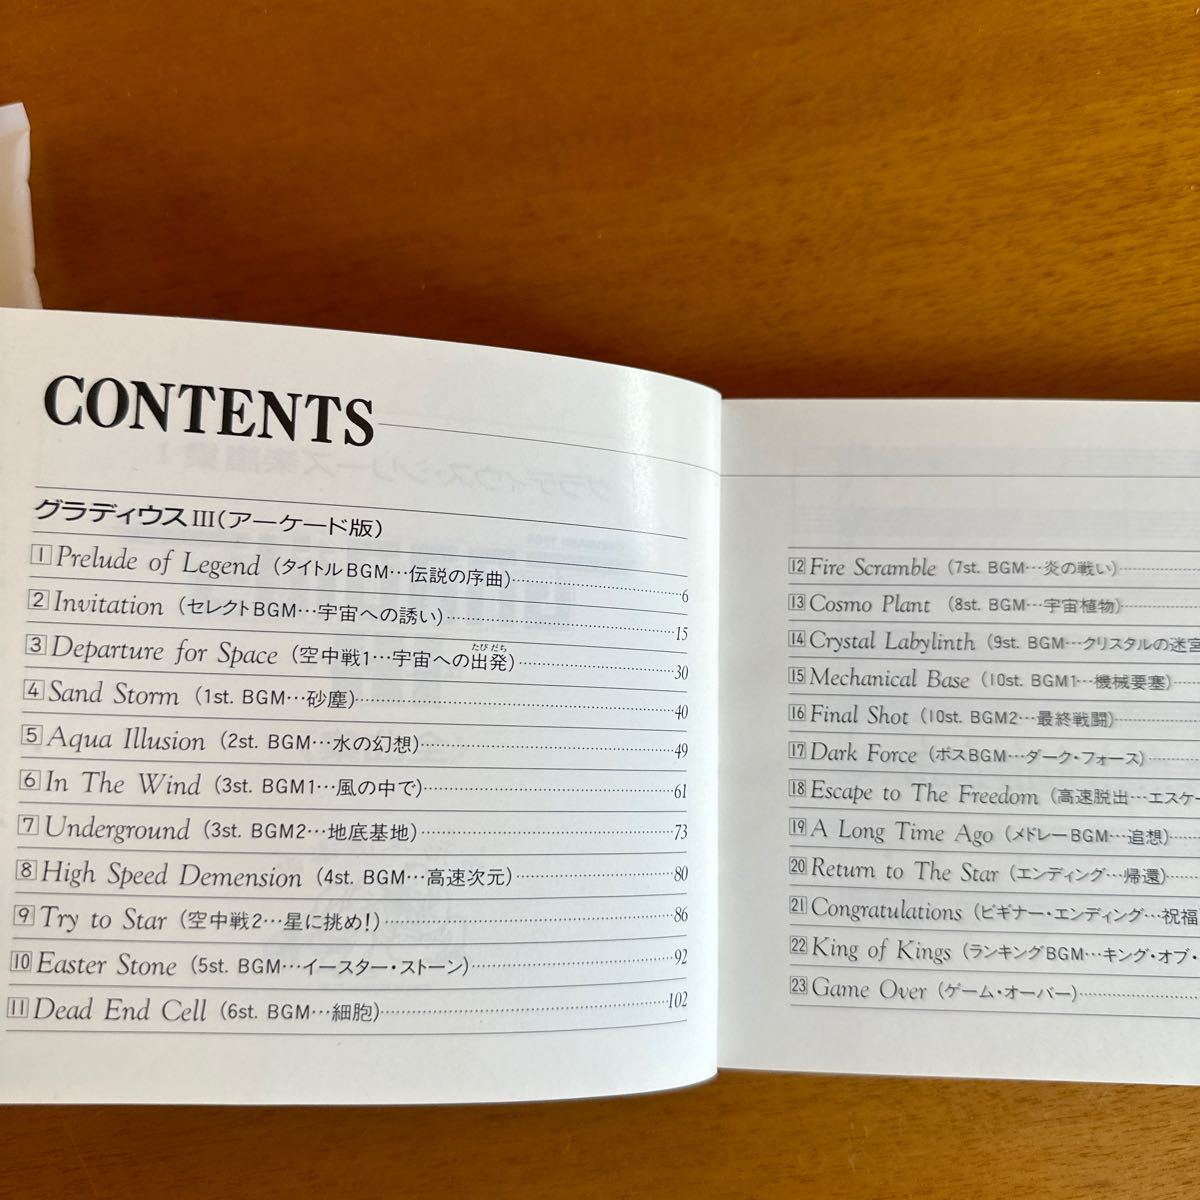 CONTENTS
グラディウスIII(アーケード版)
1 Prelude of Legend (タイトルBGM…伝説の序曲) 6
2 Invitation (セレクトBGM…宇宙への誘い) 15
3 Departure for Space (空中戦1…宇宙への出発) 30
たびだち
4 Sand Storm (1st. BGM…砂塵) 40
5 Aqua Illusion (2st. BGM…水の幻想) 49
6 In The Wind (3st. BGM1…風の中で) 61
7 Underground (3st. BGM2…地底基地) 73
8 High Speed Demension (4st. BGM…高速次元) 80
9 Try to Star (空中戦2…星に挑め!) 86
10 Easter Stone (5st. BGM…イースター・ストーン) 92
11 Dead End Cell (6st. BGM…細胞) 102
12 Fire Scramble (7st. BGM…炎の戦い)
13 Cosmo Plant (8st. BGM…宇宙植物)
14 Crystal Labylinth (9st. BGM…クリスタルの迷宮
15 Mechanical Base (10st. BGM1…機械要塞)
16 Final Shot (10st. BGM2…最終戦闘)
17 Dark Force (ボスBGM…ダーク・フォース)
18 Escape to The Freedom (高速脱出…エスケー
19 A Long Time Ago (メドレーBGM…追想)
20 Return to The Star (エンディング…帰還)
21 Congratulations (ビギナー・エンディング…祝福
22 King of Kings (ランキングBGM…キング・オブ・
23 Game Over (ゲーム・オーバー)